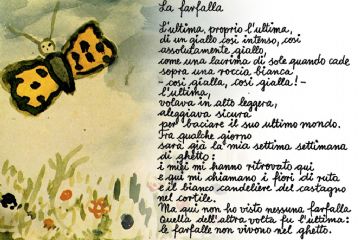 La farfalla
L'ultima, proprio l'ultima,
di un giallo così intenso, così
assolutamente giallo,
come una lacrima di sole quando cade
sopra una roccia bianca
- così gialla, così gialla! -
l'ultima,
volava in alto leggera,
aleggiava sicura
per baciare il suo ultimo mondo.
Fra qualche giorno
sarà già la mia settima settimana
di ghetto:
i miei mi hanno ritrovato qui
e qui mi chiamano i fiori di ruta
e il bianco candeliere del castagno
nel cortile.
Ma qui non ho visto nessuna farfalla.
Quella dell'altra volta fu l'ultima:
le farfalle non vivono nel ghetto.